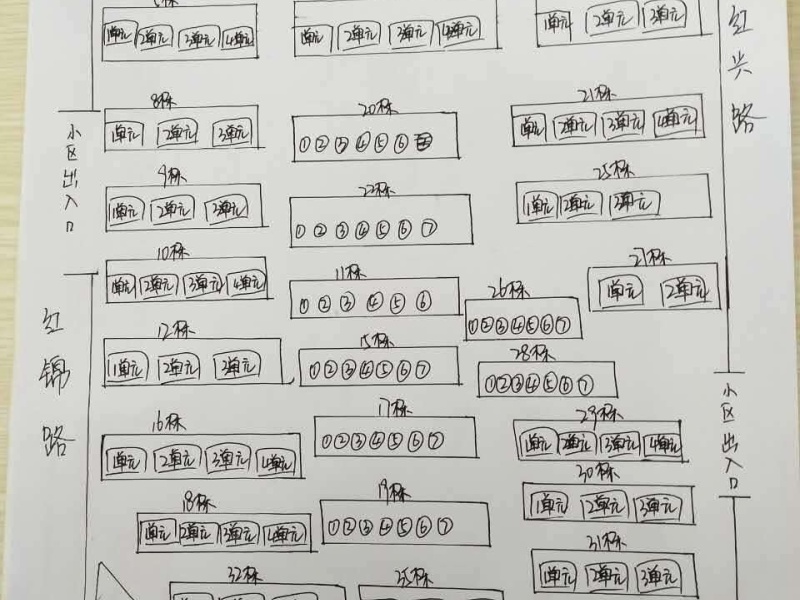 1单元 2单元 3单元 4单元
1单元 2单元 3单元 4单元
1单元 2单元 3单元
红兴路
8栋
1单元 2单元 3单元
20栋
① ② ③ ④ ⑤ ⑥
21栋
1单元 2单元 3单元 4单元
小区出入口
9栋
1单元 2单元 3单元
22栋
① ② ③ ④ ⑤ ⑥ ⑦
25栋
1单元 2单元 3单元
10栋
1单元 2单元 3单元 4单元
11栋
① ② ③ ④ ⑤ ⑥
26栋
① ② ③ ④ ⑤ ⑥ ⑦
27栋
1单元 2单元
红锦路
12栋
1单元 2单元 3单元
15栋
① ② ③ ④ ⑤ ⑥ ⑦
28栋
① ② ③ ④ ⑤ ⑥ ⑦
小区出入口
16栋
1单元 2单元 3单元 4单元
17栋
① ② ③ ④ ⑤ ⑥ ⑦
29栋
1单元 2单元 3单元 4单元
18栋
1单元 2单元 3单元 4单元
19栋
① ② ③ ④ ⑤ ⑥ ⑦
30栋
1单元 2单元 3单元
31栋
1单元 2单元 3单元
32栋
35栋